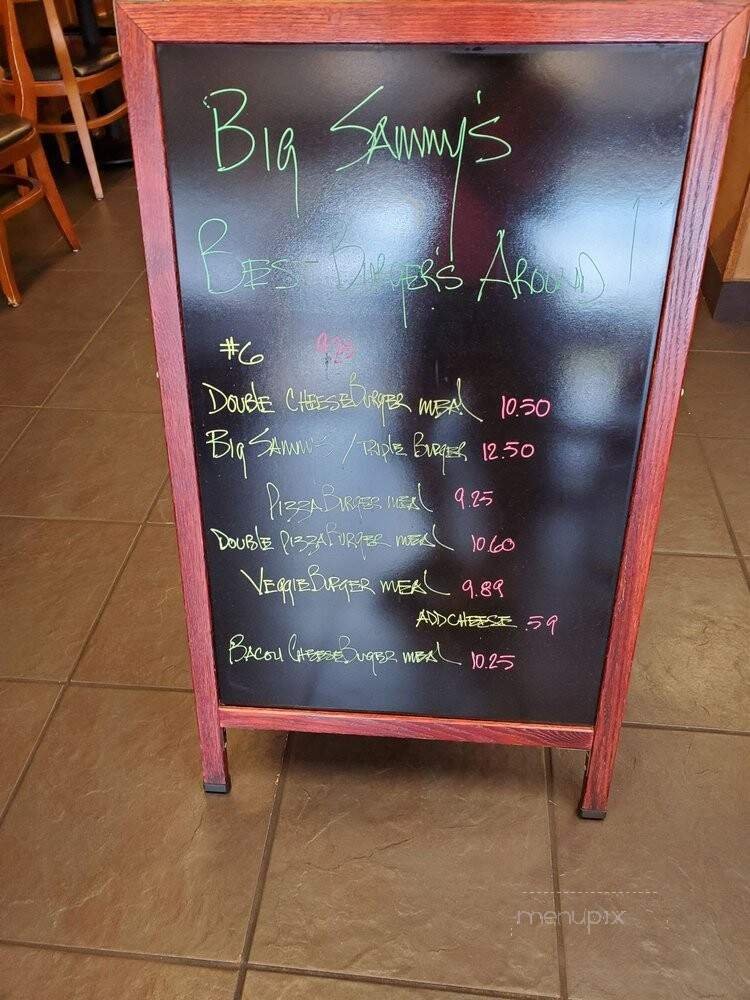 Big Sammy's
Best Burger's Around!
#6
Double CheeseBurger meal 10.50
Big Sammy's / Triple Burger 12.50
Pizza Burger meal 9.25
Double Pizza Burger meal 10.60
Veggie Burger meal 9.89
Add Cheese .59
Bacon Cheese Buger meal 10.25
menupix